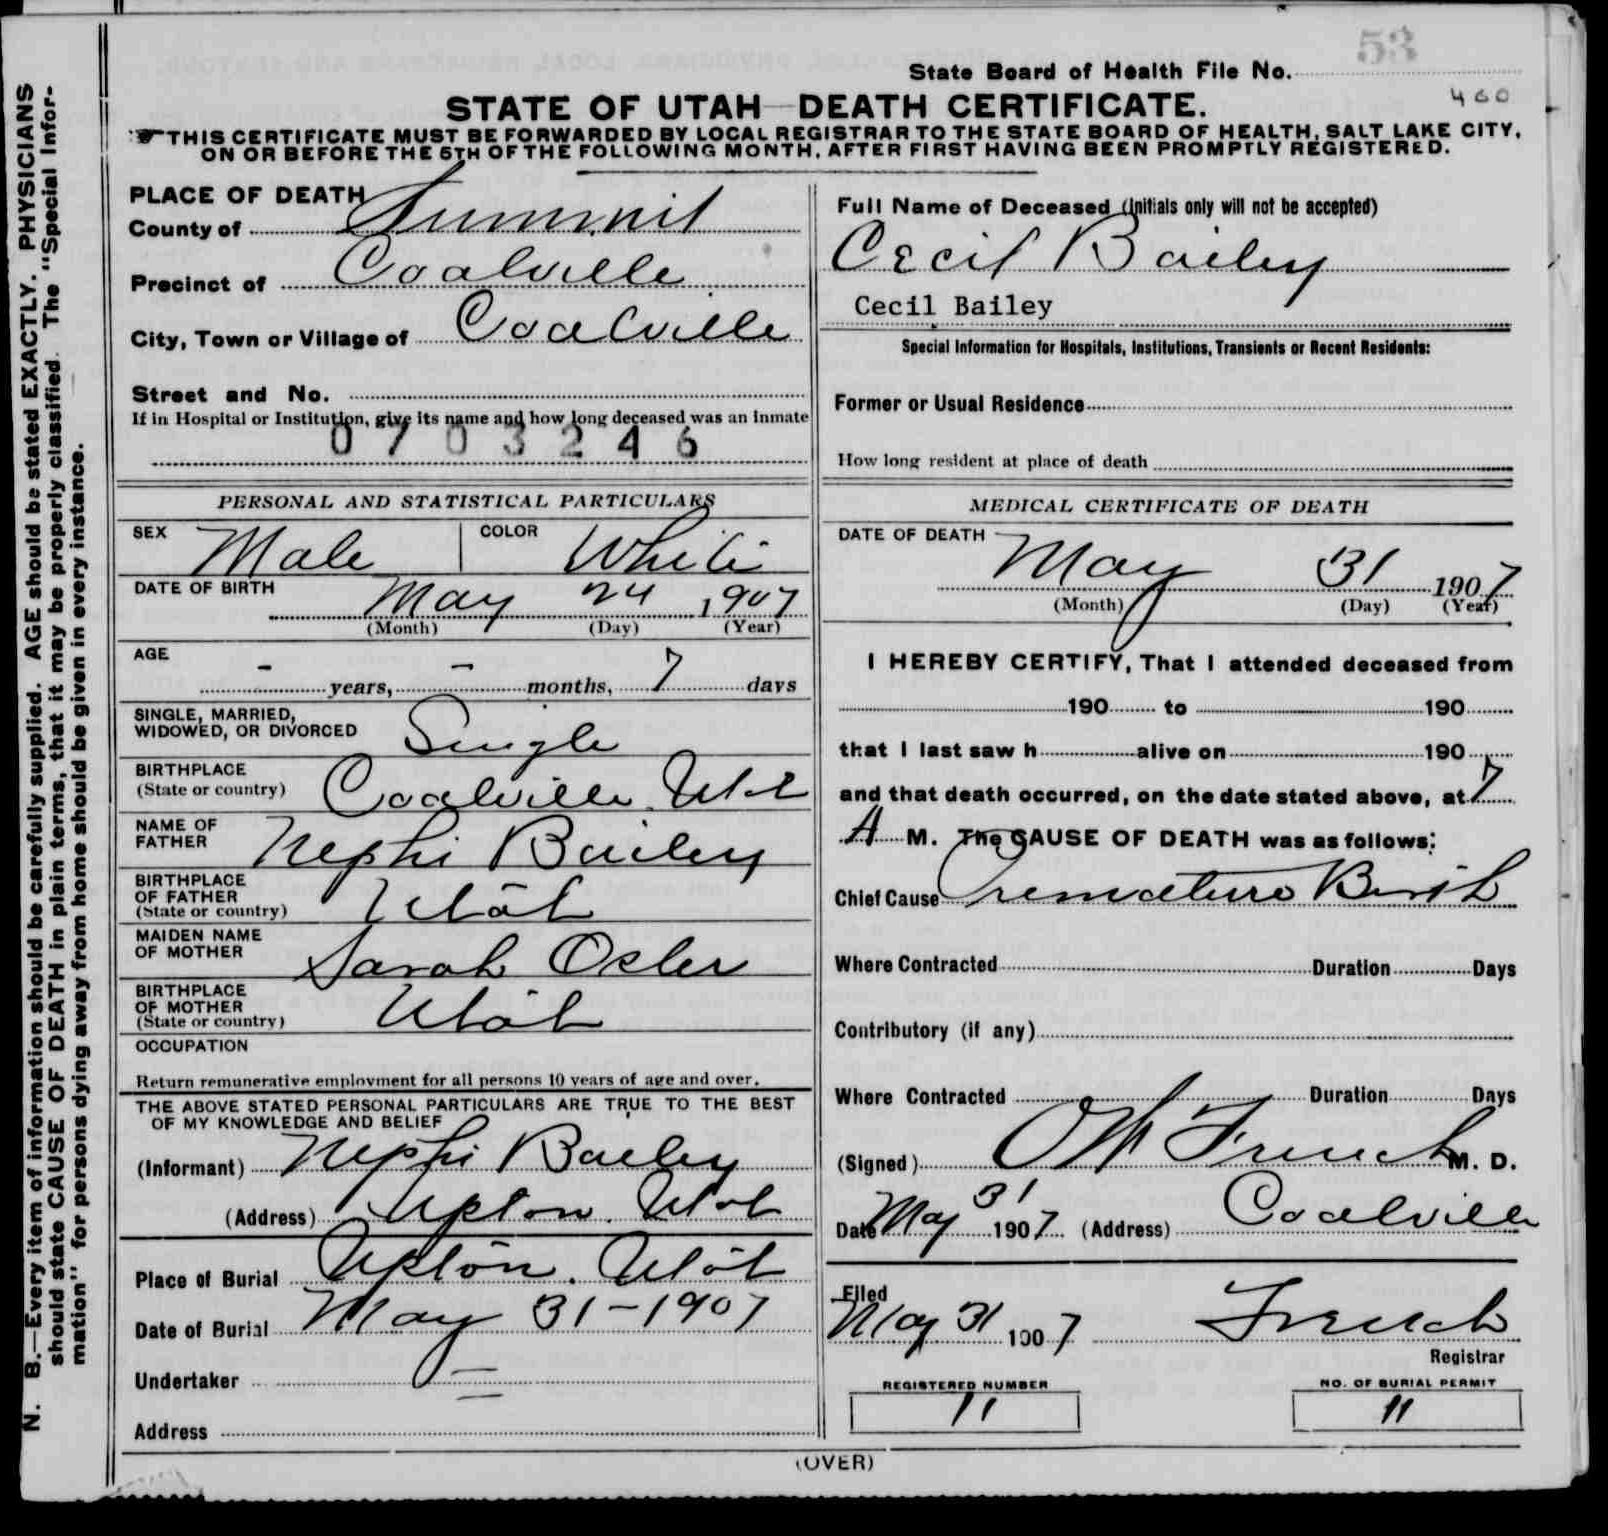 53
State Board of Health File No.
460
STATE OF UTAH—DEATH CERTIFICATE.
☛THIS CERTIFICATE MUST BE FORWARDED BY LOCAL REGISTRAR TO THE STATE BOARD OF HEALTH, SALT LAKE CITY,
ON OR BEFORE THE 5TH OF THE FOLLOWING MONTH, AFTER FIRST HAVING BEEN PROMPTLY REGISTERED.
N. B.—Every item of information should be carefully supplied. AGE should be stated EXACTLY. PHYSICIANS
should state CAUSE OF DEATH in plain terms, that it may be properly classified. The "Special Infor-
mation" for persons dying away from home should be given in every instance.
PLACE OF DEATH
County of Summit
Precinct of Coalville
City, Town or Village of Coalville
Street and No.
If in Hospital or Institution, give its name and how long deceased was an inmate
0703246
PERSONAL AND STATISTICAL PARTICULARS
SEX Male COLOR White
DATE OF BIRTH
May 24 1907
(Month) (Day) (Year)
AGE
- years, - months, 7 days
SINGLE, MARRIED,
WIDOWED, OR DIVORCED Single
BIRTHPLACE
(State or country) Coalville Utah
NAME OF
FATHER Nephi Bailey
BIRTHPLACE
OF FATHER
(State or country) Utah
MAIDEN NAME
OF MOTHER Sarah Osler
BIRTHPLACE
OF MOTHER
(State or country) Utah
OCCUPATION
Return remunerative employment for all persons 10 years of age and over.
THE ABOVE STATED PERSONAL PARTICULARS ARE TRUE TO THE BEST
OF MY KNOWLEDGE AND BELIEF
(Informant) Nephi Bailey
(Address) Upton. Utah
Place of Burial Upton. Utah
Date of Burial May 31-1907
Undertaker
Address
Full Name of Deceased (Initials only will not be accepted)
Cecil Bailey
Cecil Bailey
Special Information for Hospitals, Institutions, Transients or Recent Residents:
Former or Usual Residence
How long resident at place of death
MEDICAL CERTIFICATE OF DEATH
DATE OF DEATH
May 31 1907
(Month) (Day) (Year)
I HEREBY CERTIFY, That I attended deceased from
190 to 190
that I last saw h alive on 190
and that death occurred, on the date stated above, at 7
A M. The CAUSE OF DEATH was as follows:
Chief Cause Premature Birth
Where Contracted Duration Days
Contributory (if any)
Where Contracted Duration Days
(Signed) French M. D.
Date May 31 1907 (Address) Coalville
Filed
May 31 1907 French
Registrar
REGISTERED NUMBER
11
NO. OF BURIAL PERMIT
11
(OVER)